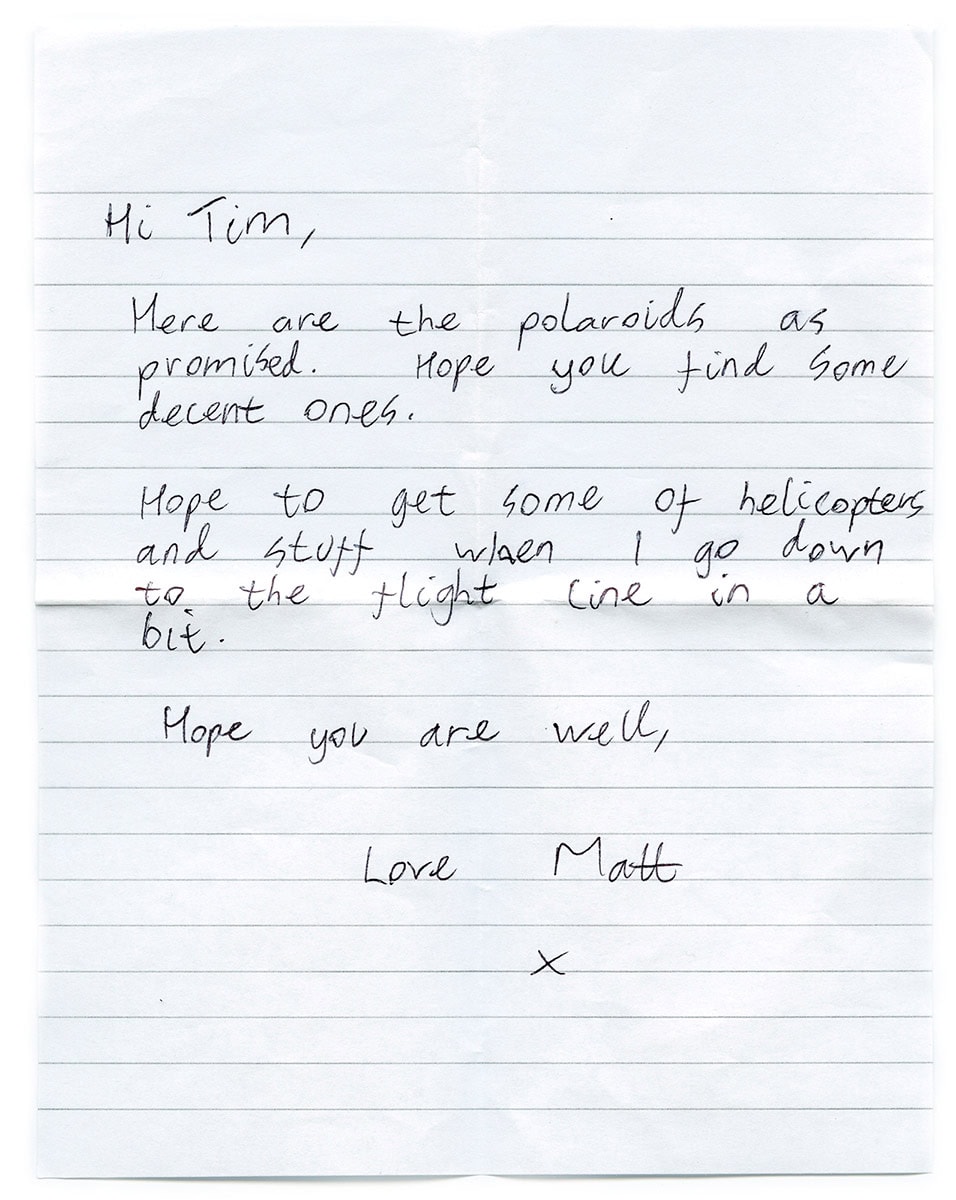 Hi Tim,
Here are the polaroids as
promised. Hope you find some
decent ones.
Hope to get some of helicopters
and stuff when I go down
to the flight line in a
bit.
Hope you are well,
Love Matt
x